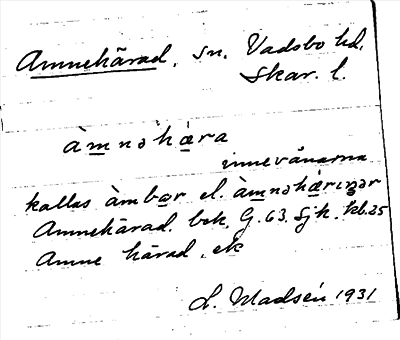 Amnehärad, sn. Vadsbo hd.
Skar. l.
àmnəhä̀ra
innevånarna
kallas àmbər el. àmnəhä̀riŋər
Amnehärad. bek. G. 63. Sjh. kb. 25
Amne härad. ek
L. Madsén 1931